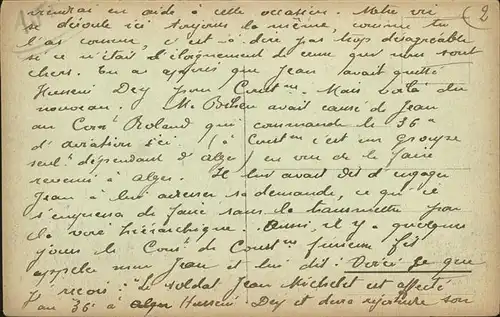 viendrai en aide à cette occasion. Notre vie
2
se déroule ici toujours la même, comme tu
l'as connue, c'est à dire pas trop désagréable
si ce n'était l'éloignement de ceux qui nous sont
chers. Tu as appris que Jean avait quitté
Hussein Dey pour Const^ne. Mais voilà du
nouveau. M. avait causé de Jean
au Com^t Roland qui commande le 36^e
d'aviation d'ici (à Const^ne c'est un groupe
seul^t dépendant d'Alger) en vue de le faire
revenir à Alger. Il lui avait dit d'engager
Jean à lui adresser sa demande, ce qu'il
s'empressa de faire sans la transmettre par
la voie hiérarchique. Aussi, il y a quelques
jours le Com^t de Const^ne furieux fit
appeler mon Jean et lui dit : Voici ce que
je reçois : "Le soldat Jean Michelet est affecté
au 36^e à Hussein Dey et devra rejoindre son